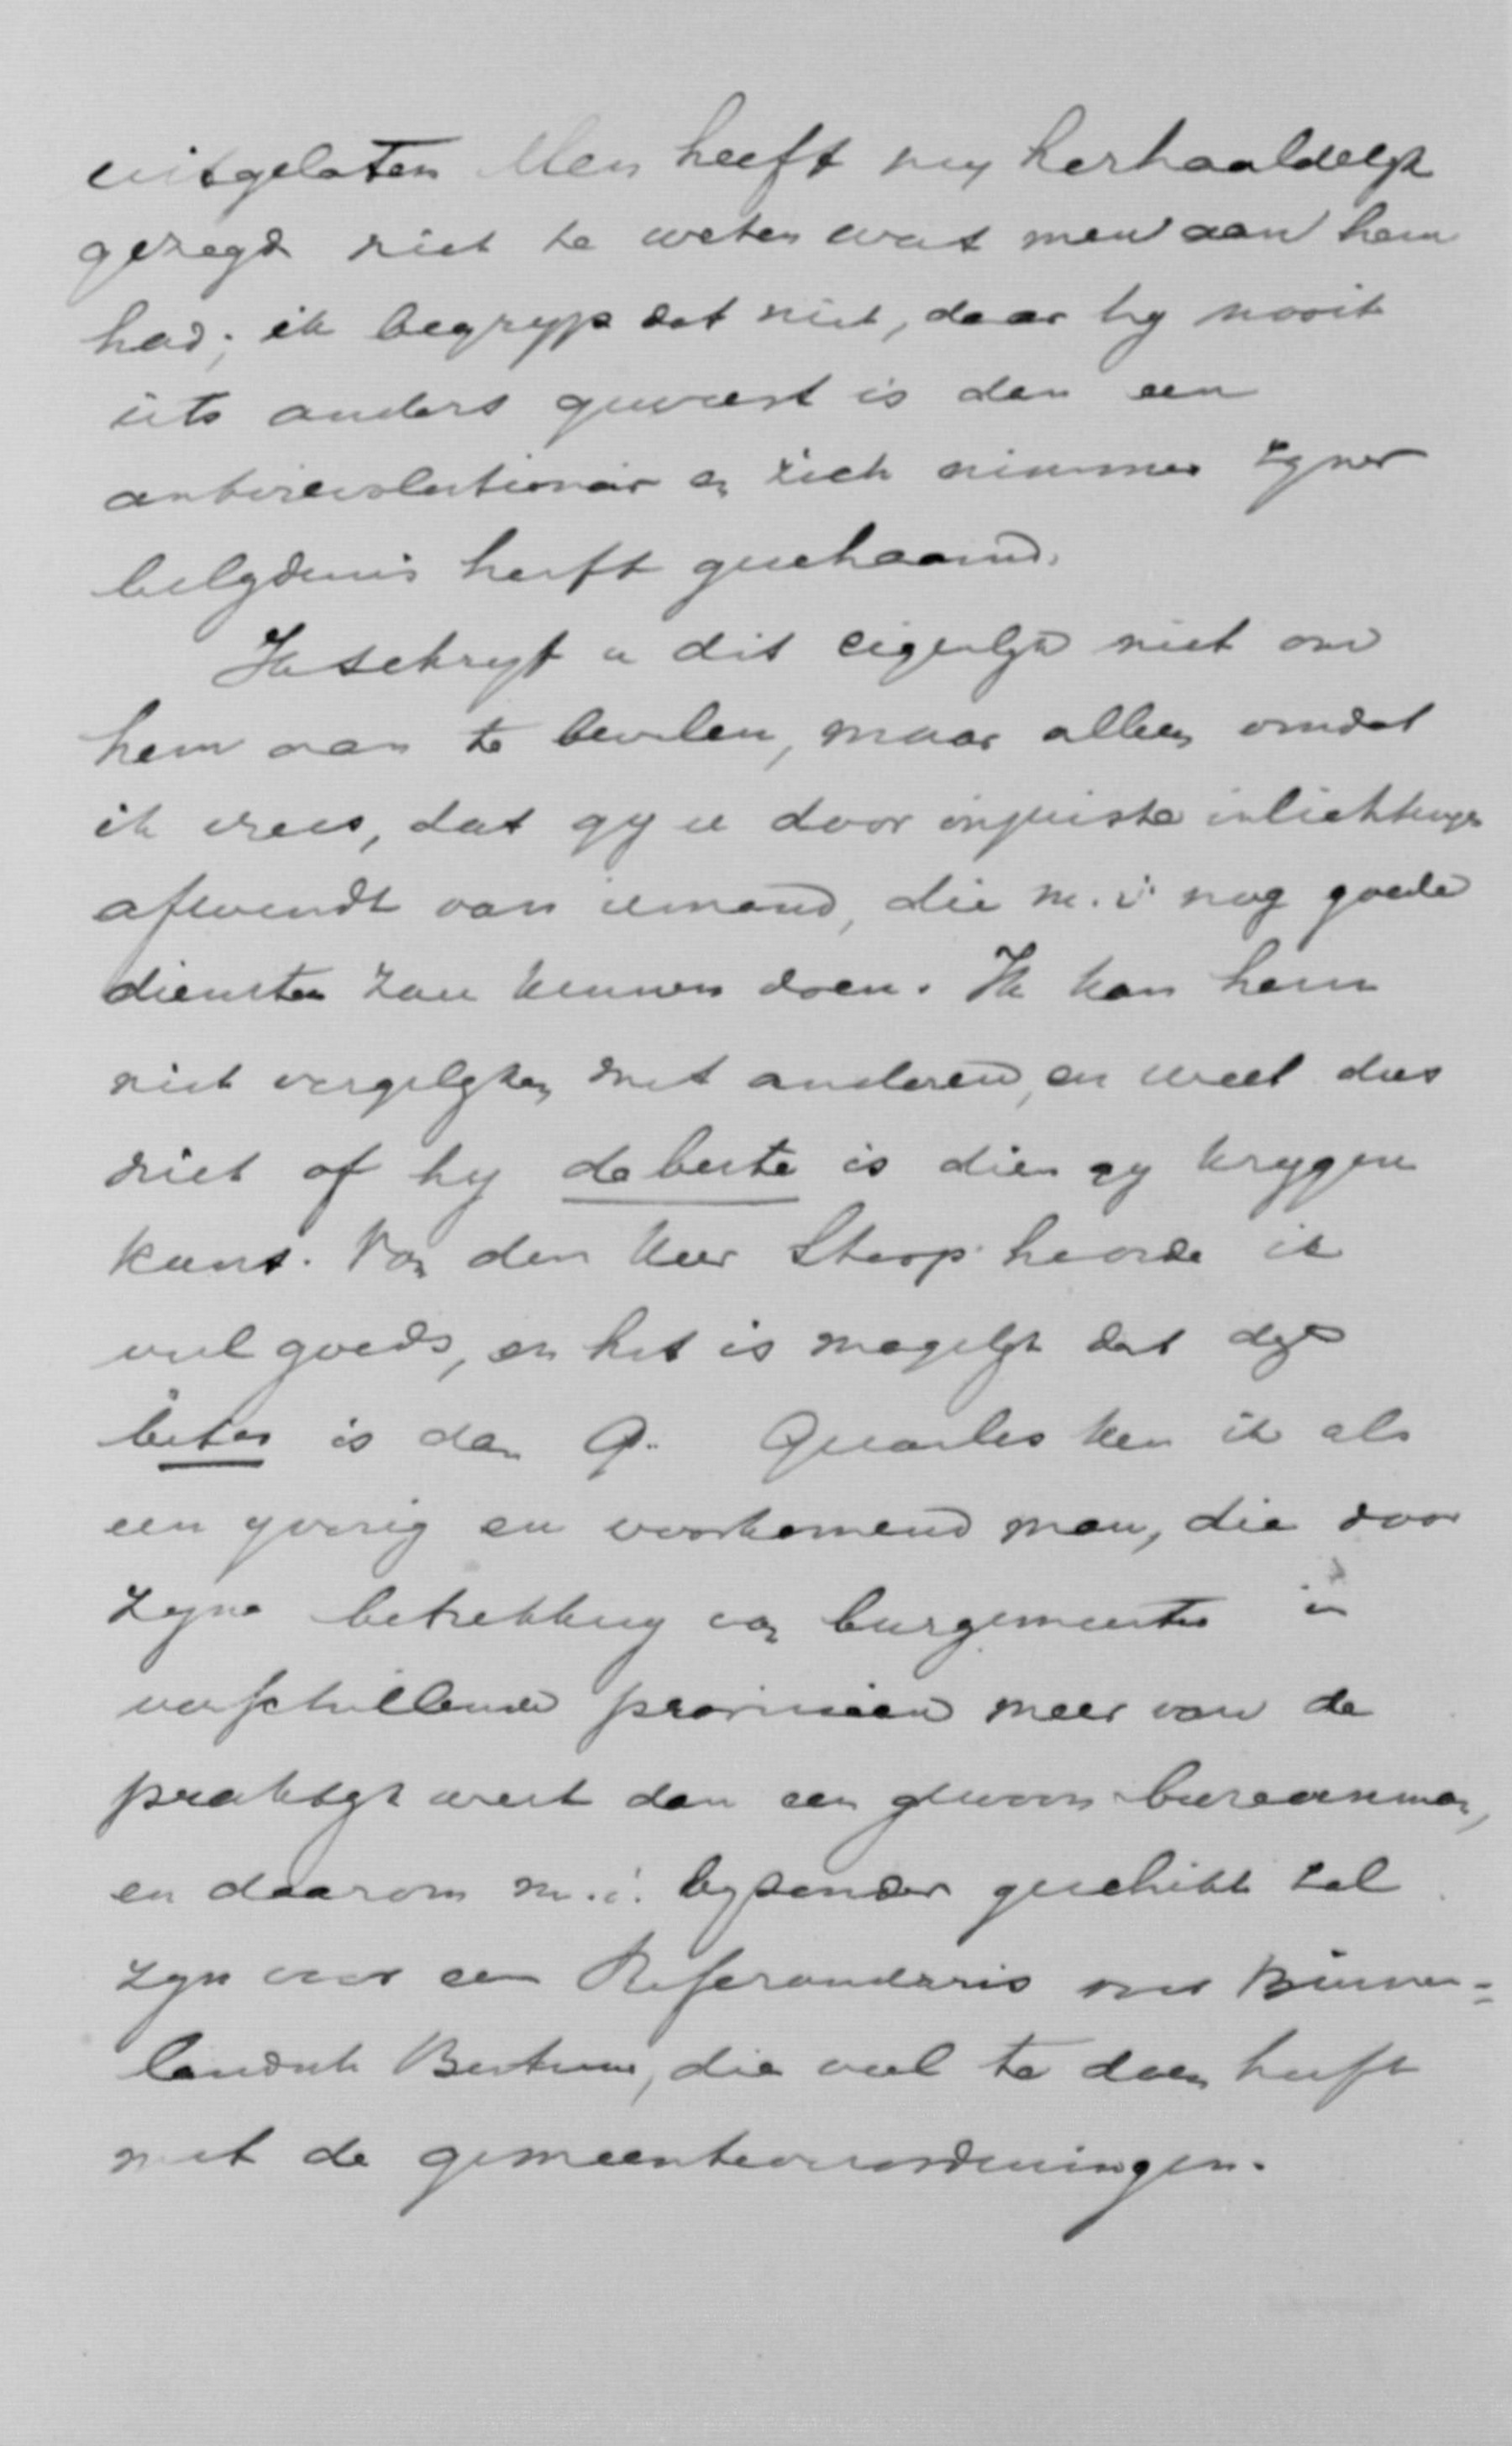 uitgelaten Men heeft my herhaaldelyk
gezegd niet te weten wat men aan hem
had; ik begryp dat niet, daar hy nooit
iets anders geweest is dan een
antirevolutionair en zich nimmer zyner
belydenis heeft geschaamd.
Ik schryf u dit eigenlyk niet om
hem aan te bevelen, maar alleen omdat
ik vrees, dat gy u door onjuiste inlichtingen
afwendt van iemand, die m.i. nog goede
diensten zou kunnen doen. Ik kan hem
niet vergelyken met anderen, en weet dus
niet of hy de beste is dien gy krygen
kunt. Van den Heer Stoop hoorde ik
veel goeds, en het is mogelyk dat deze
beter is dan Q. Quarles ken ik als
een yverig en voorkomend man, die door
zyne betrekking van burgemeester in
verschillende provincien meer van de
praktyk weet dan een gewoon bureauman,
en daarom m.i. byzonder geschikt zal
zyn voor een Referendaris over Binnen=
landsch Bestuur, die veel te doen heeft
met de gemeenteverordeningen.